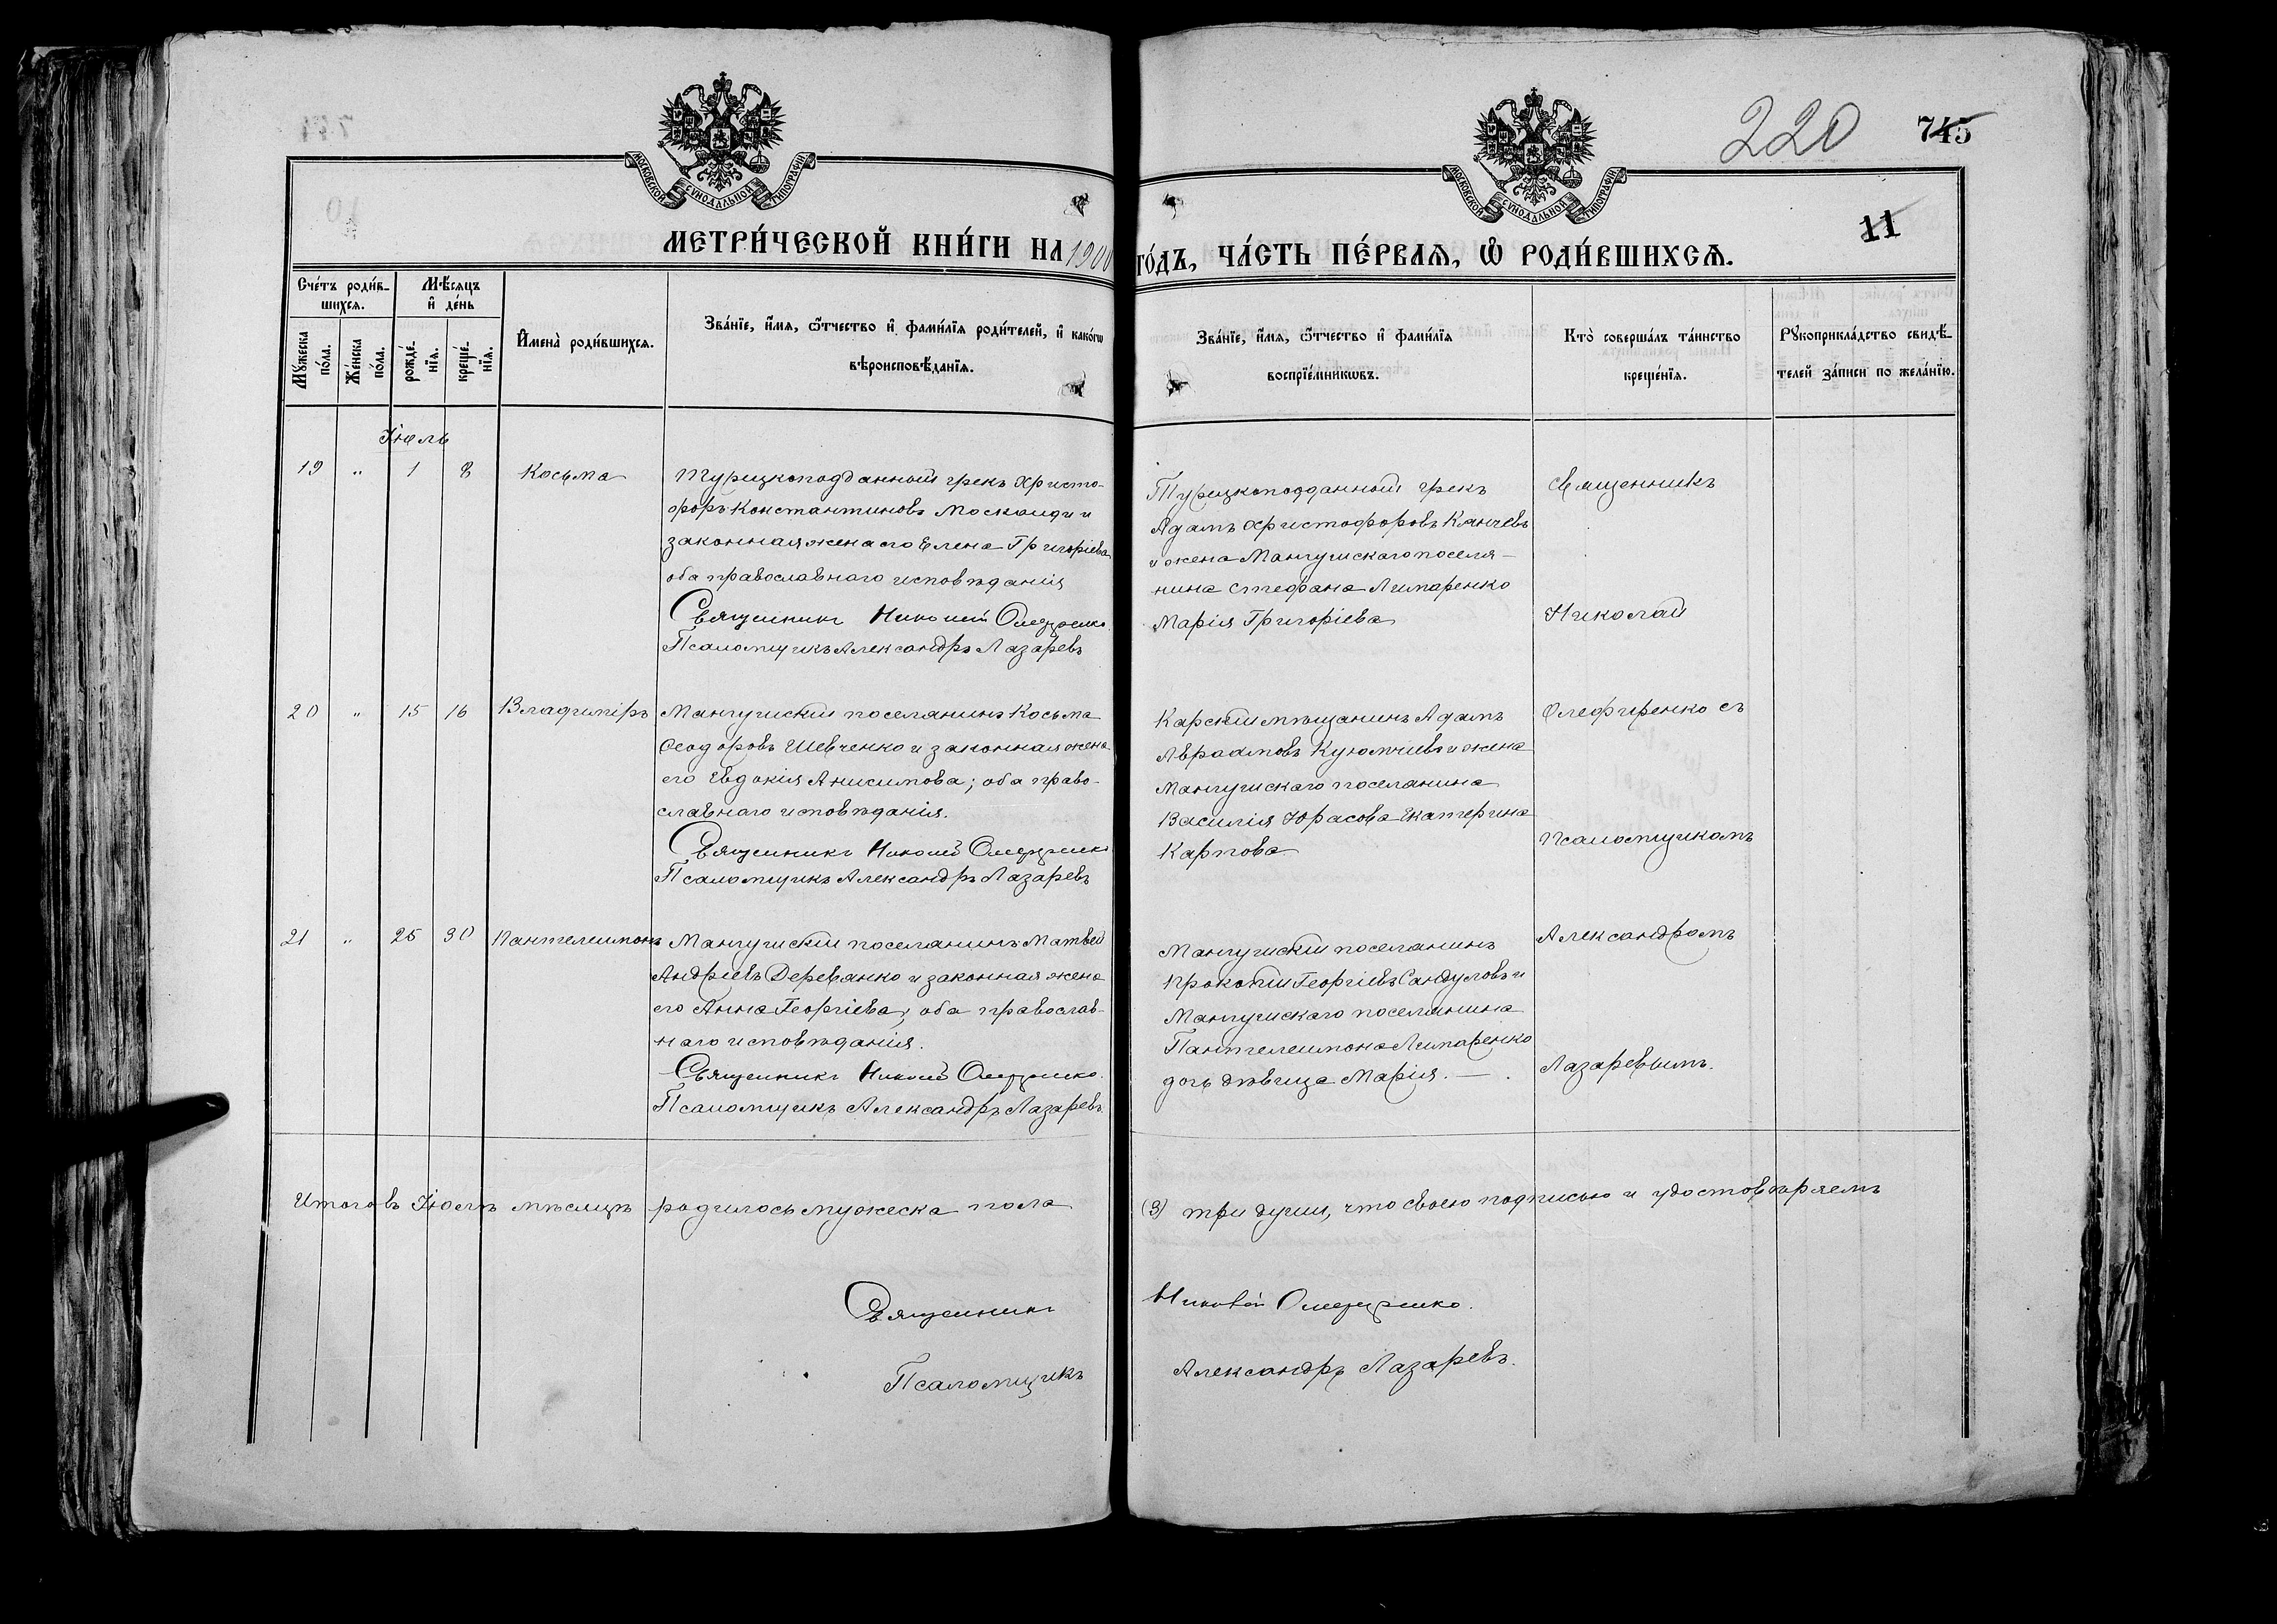 220
745
11
МОСКОВСКОЙ СѴНОДАЛЬНОЙ ТИПОГРАФІИ
МОСКОВСКОЙ СѴНОДАЛЬНОЙ ТИПОГРАФІИ
МЕТРИ́ЧЕСКОЙ КНИ́ГИ НА 1900 ГО́ДЪ, ЧА́СТЬ ПЕ́РВАѦ, Ѡ҆ РОДИ́ВШИХСѦ.
Сче́тъ роди́в-
шихся.
Мѣ́сяцъ
и҆ де́нь
Мꙋ́жеска
по́ла.
Же́нска
по́ла.
рожде́-
нїя.
креще́-
нїя.
И҆мена̀ роди́вшихся.
Зва́нїе, и҆́мя, ѻ҆́тчество и҆ фами́лїя роди́телей, и҆ како́гѡ
вѣроисповѣ́данїя.
Зва́нїе, и҆́мя, ѻ҆́тчество и҆ фами́лїя
воспрїе́мникѡвъ.
Кто̀ соверша́лъ та́инство
креще́нїя.
Рꙋкоприкла́дство свидѣ́-
телей за́писи по жела́нїю.
Іюль
19 " 1 8 Косьма
Турецкоподданный грекъ Христо-
форъ Константиновъ Москоиди и
законная жена его Елена Григоріева
оба православнаго исповѣданія
Священникъ Николай Олефиренко
Псаломщикъ Александръ Лазаревъ
Турецкоподданный грекъ
Адамъ Христофоровъ Канчевъ
и жена Мангушскаго поселя-
нина Стефана Лимаренко
Марія Григоріева
Священникъ
Николай
20 " 15 16 Владимiръ
Мангушскій поселянинъ Косьма
Ѳеодоровъ Шевченко и законная жена
его Евдокія Анисимова; оба право-
славнаго исповѣданія.
Священникъ Николай Олефиренко
Псаломщикъ Александръ Лазаревъ
Карскій мѣщанинъ Адамъ
Авраамовъ Куюмчіевъ и жена
Мангушскаго поселянина
Василія Юрасова Екатерина
Карпова.
Олефиренко съ
псаломщикомъ
21 " 25 30 Пантелеимонъ
Мангушскій поселянинъ Матвей
Андріевъ Деревянко и законная жена
его Анна Георгіева; оба православ-
наго исповѣданія.
Священникъ Николай Олефиренко.
Псаломщикъ Александръ Лазаревъ.
Мангушскій поселянинъ
Прокопій Георгіевъ Сандуловъ и
Мангушскаго поселянина
Пантелеимона Лимаренко
дочь дѣвица Марія. — .
Александромъ
Лазаревымъ.
Итого въ Іюлѣ мѣсяцѣ родилось мужеска пола (3) три души, что своею подписью и удостовѣряемъ
Священникъ Николай Олефиренко.
Псаломщикъ Александръ Лазаревъ.